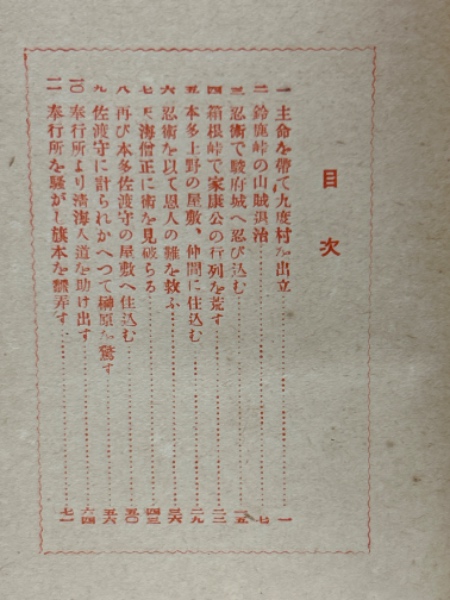 目次
一 主命を帶て九度村を出立 一
二 鈴鹿峠の山賊退治 七
三 忍術で駿府城へ忍び込む 一五
四 箱根峠で家康公の行列を荒す 二二
五 本多上野の屋敷、仲間に住込む 二九
六 忍術を以て恩人の難を救ふ 三六
七 天海僧正に術を見破らる 四三
八 再び本多佐渡守の屋敷へ住込む 五〇
九 佐渡守に計られかへつて榊原を驚す 五六
一〇 奉行所より淸海入道を助け出す 六四
一一 奉行所を騷がし旗本を飜弄す 七一